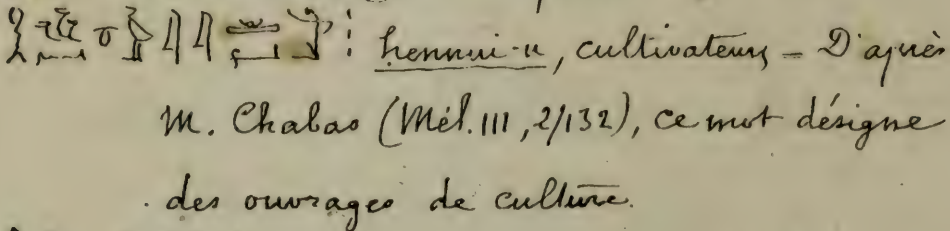 hennui-u, cultivateurs – D'après
M. Chabas (Mél. III, 2/132), ce mot désigne
des ouvrages de culture.